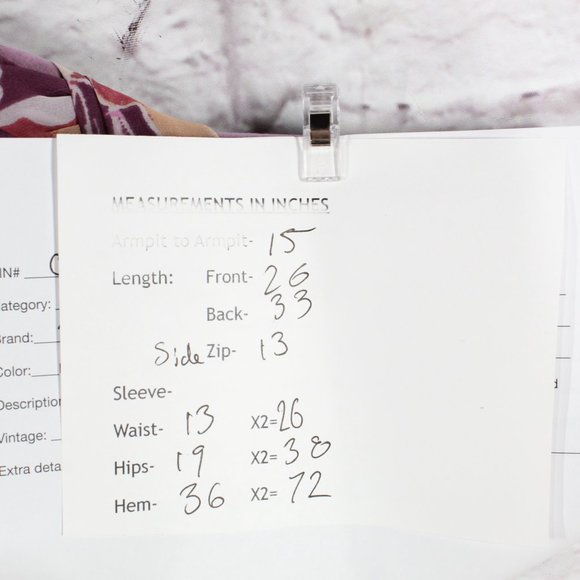 MEASUREMENTS IN INCHES
Armpit to Armpit- 15
Length: Front- 26
Back- 33
Side Zip- 13
Sleeve-
Waist- 13 X2=26
Hips- 19 X2= 38
Hem- 36 X2= 72
IN#
ategory:
Brand:
Color:
Description
Vintage:
Extra deta